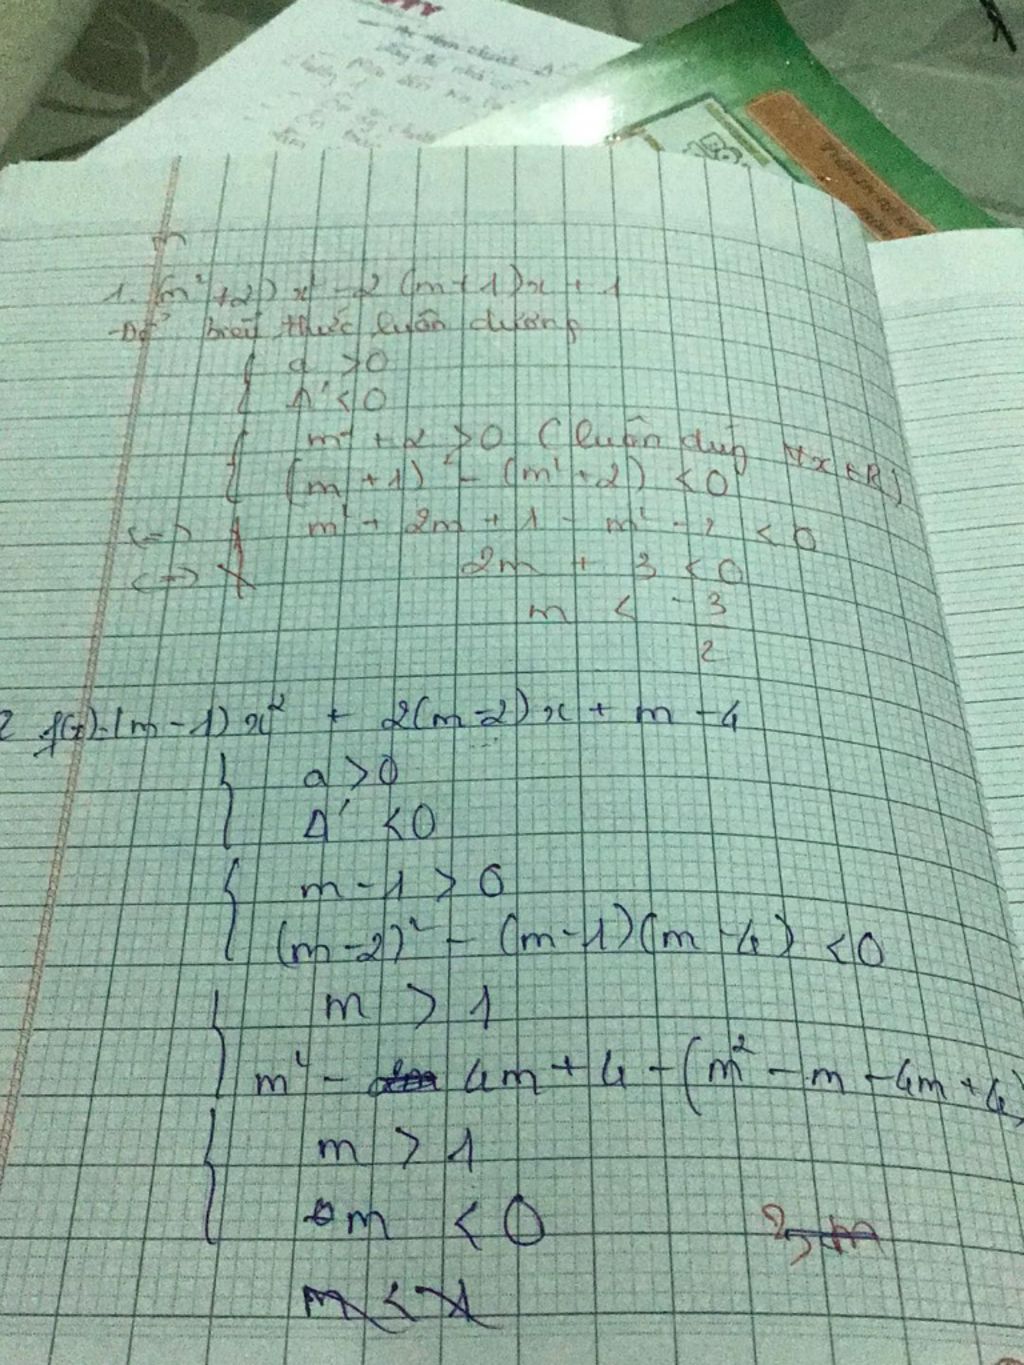 1. (m² + 2) x² - 2 (m + 1)x + 1
- Để biểu thức luôn dương
{ a > 0
{ Δ' < 0
{ m² + 2 > 0 ( luôn đúng ∀x ∈ R )
{ (m + 1)² - (m² + 2) < 0
<=> { m² + 2m + 1 - m² - 2 < 0
<=> 2m + 3 < 0
m < - 3
2
2 f(x) = (m - 1) x² + 2(m - 2) x + m - 4
{ a > 0
{ Δ' < 0
{ m - 1 > 0
{ (m - 2)² - (m - 1)(m - 4) < 0
{ m > 1
{ m² - 4m + 4 - (m² - m - 4m + 4)
{ m > 1
{ m < 0
m <